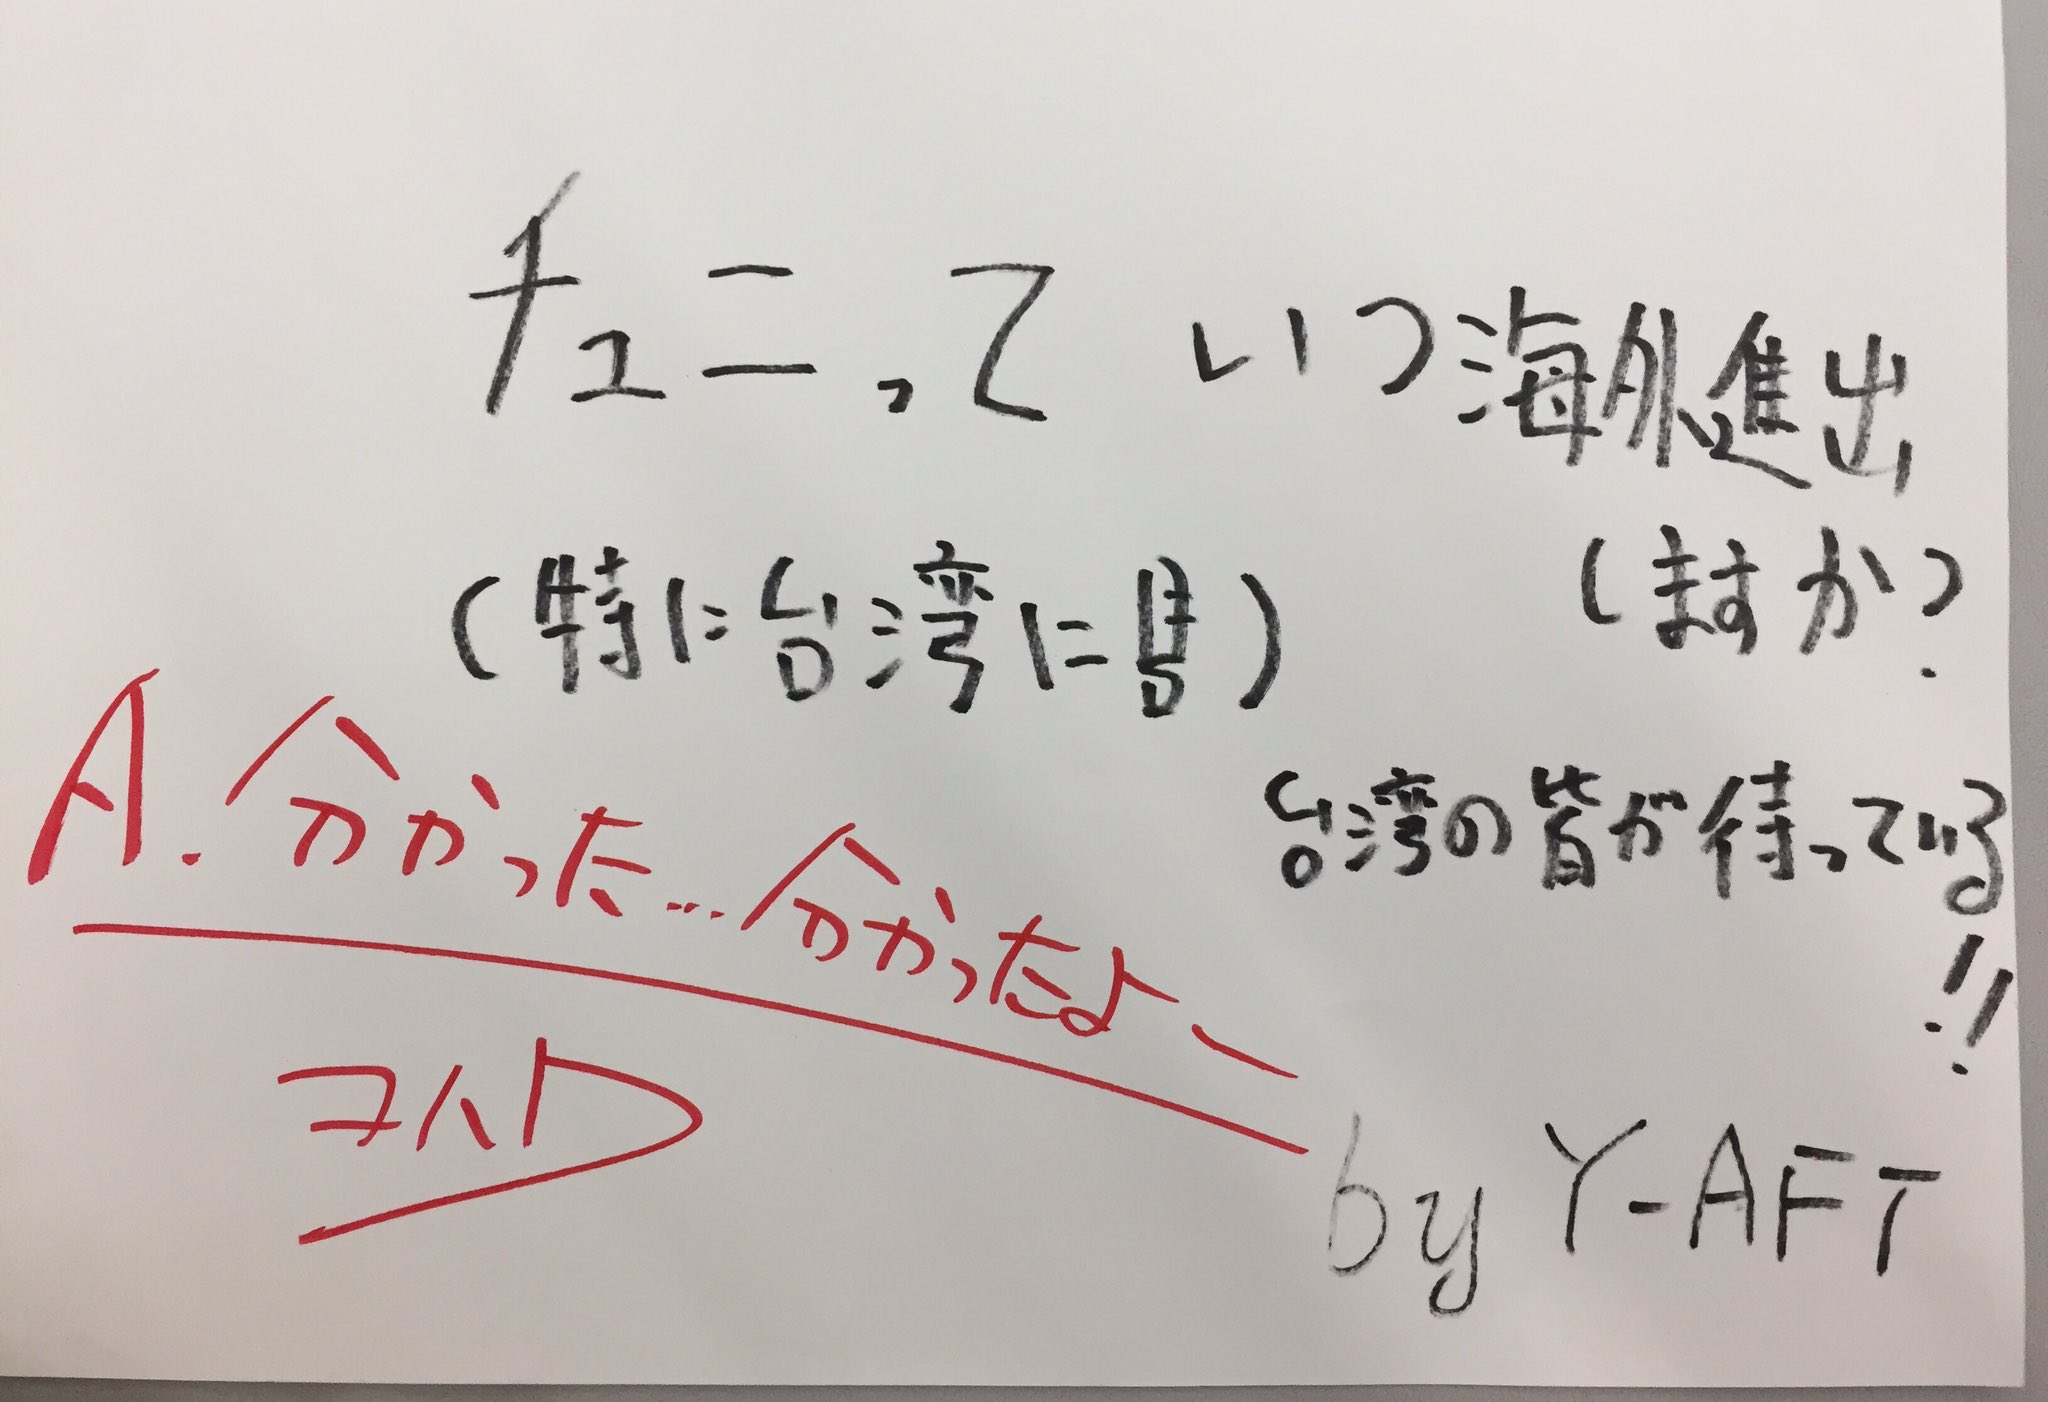 チュニって いつ海外進出
しますか?
(特に台湾に)
台湾の皆が待っている
!!
A. 分かった…分かったよー
コハD
by Y-AFT